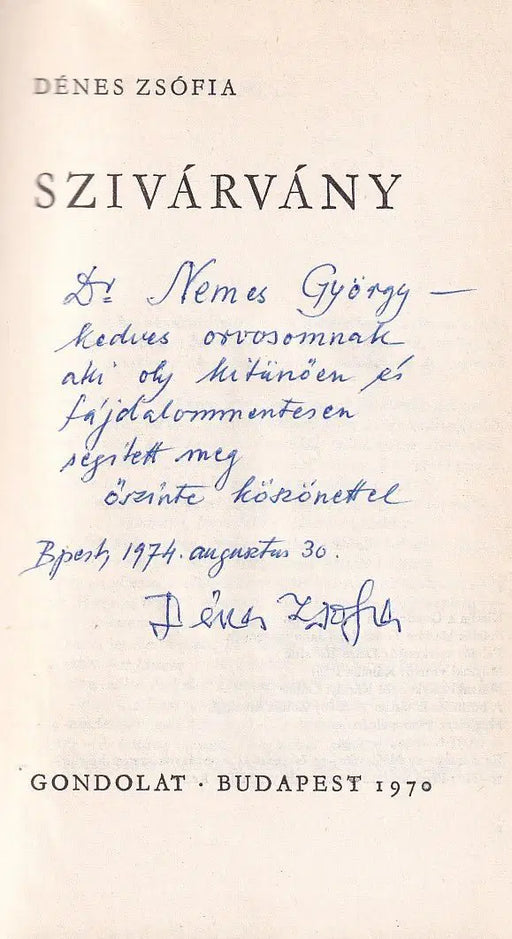 DÉNES ZSÓFIA
SZIVÁRVÁNY
Dr. Nemes György —
kedves orvosomnak
aki oly kitünően és
fájdalommentesen
segített meg
őszinte köszönettel
Bpest, 1974. augusztus 30.
Dénes Zsófia
GONDOLAT · BUDAPEST 1970